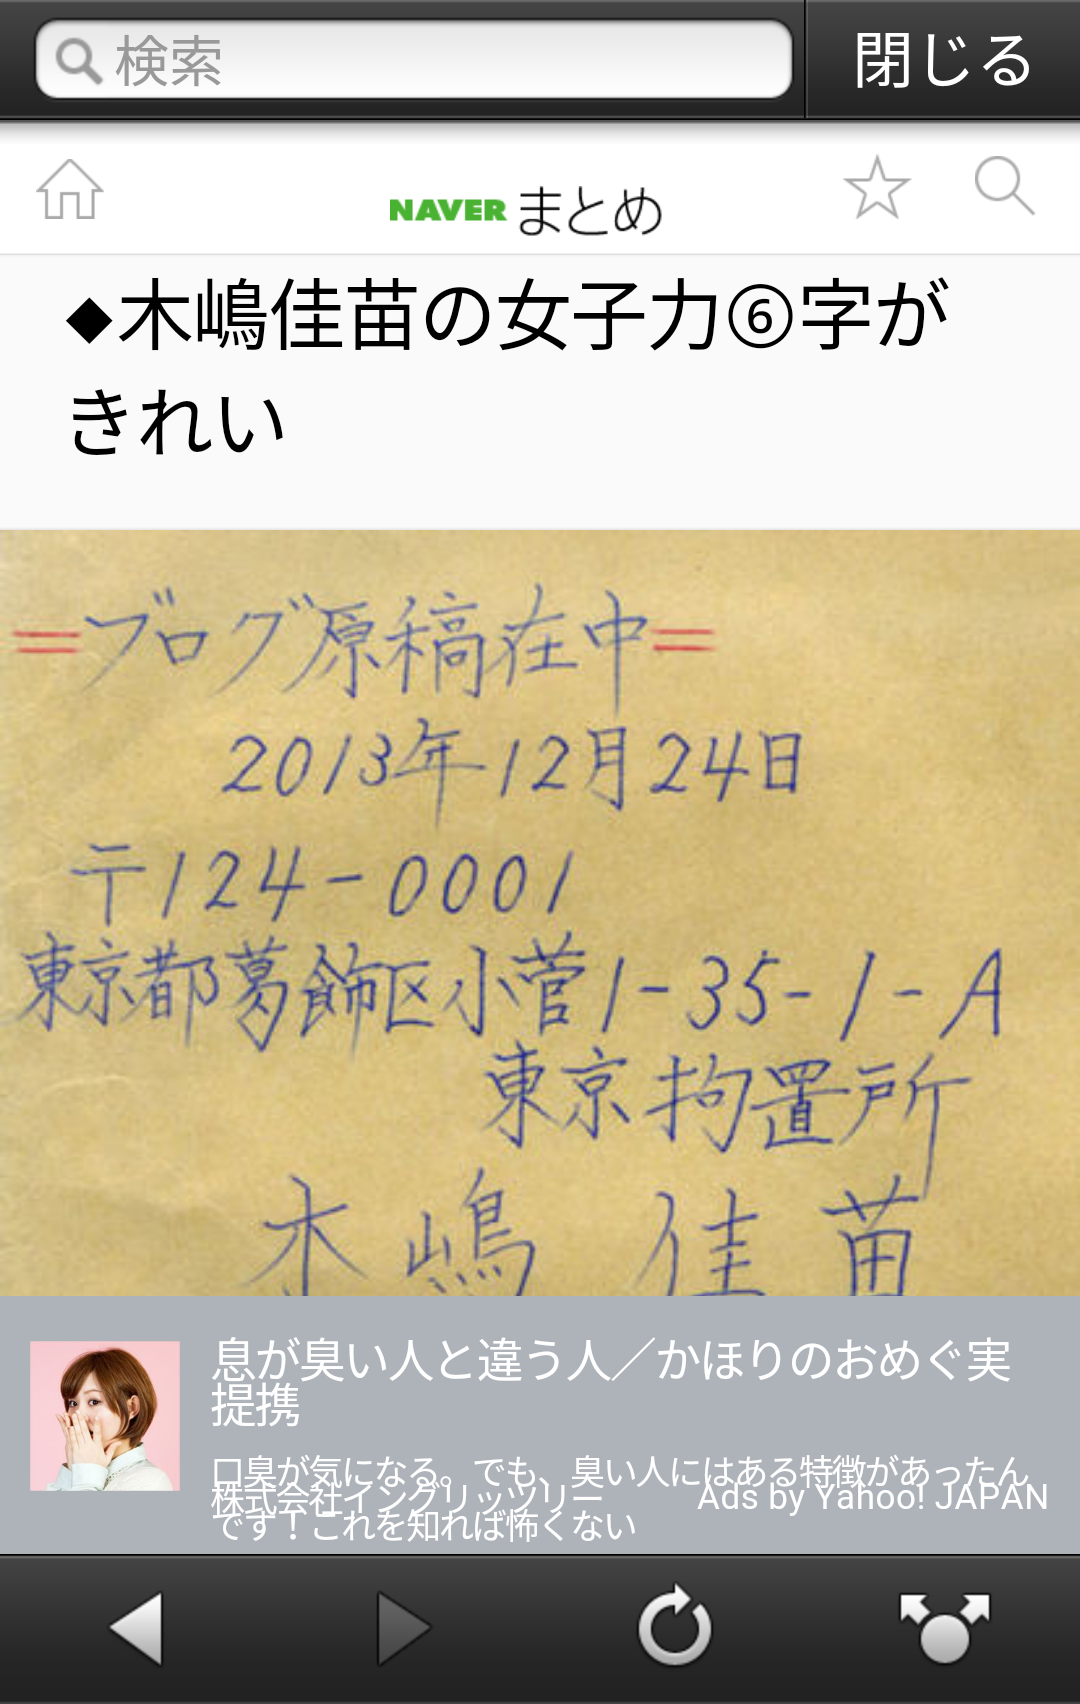 検索
閉じる
NAVER まとめ
◆木嶋佳苗の女子力⑥字が
きれい
=ブログ原稿在中=
2013年12月24日
〒124-0001
東京都葛飾区小菅1-35-1-A
東京拘置所
木嶋 佳苗
息が臭い人と違う人／かほりのおめぐ実
提携
口臭が気になる。でも、臭い人にはある特徴があったん
株式会社イングリッツリー
Ads by Yahoo! JAPAN
です！これを知れば怖くない